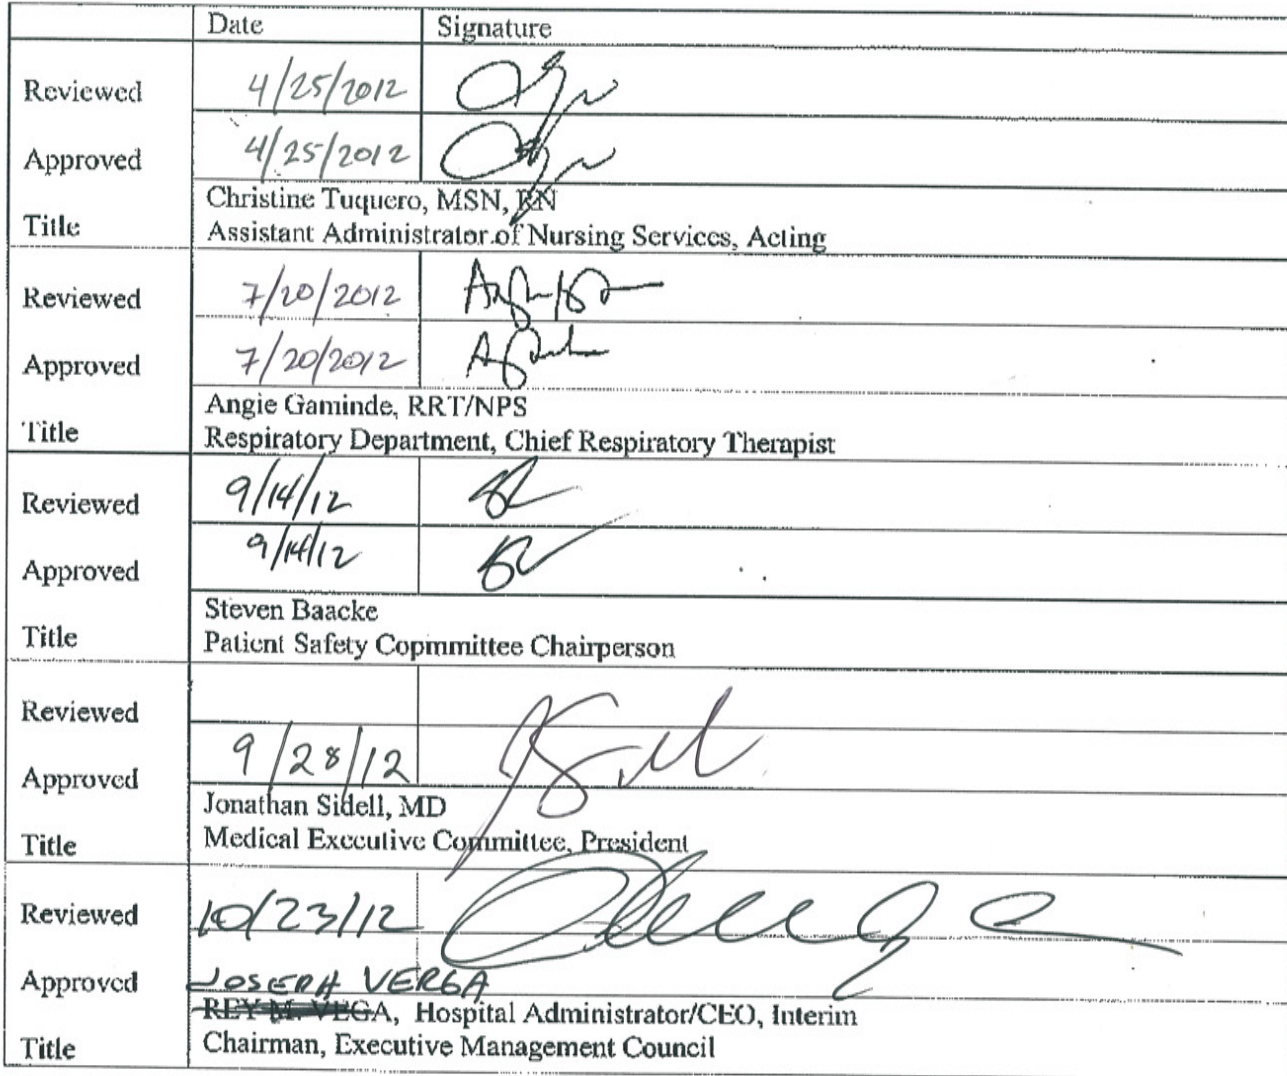 Date Signature
Reviewed 4/25/2012
Approved 4/25/2012
Christine Tuquero, MSN, RN
Title
Assistant Administrator of Nursing Services, Acting
Reviewed 7/20/2012
Approved 7/20/2012
Angie Gaminde, RRT/NPS
Title
Respiratory Department, Chief Respiratory Therapist
Reviewed 9/14/12
Approved 9/14/12
Steven Baacke
Title
Patient Safety Copmmittee Chairperson
Reviewed
Approved 9/28/12
Jonathan Sidell, MD
Title
Medical Executive Committee, President
Reviewed 10/23/12
Approved JOSEPH VERGA
REY M. VEGA, Hospital Administrator/CEO, Interim
Title
Chairman, Executive Management Council